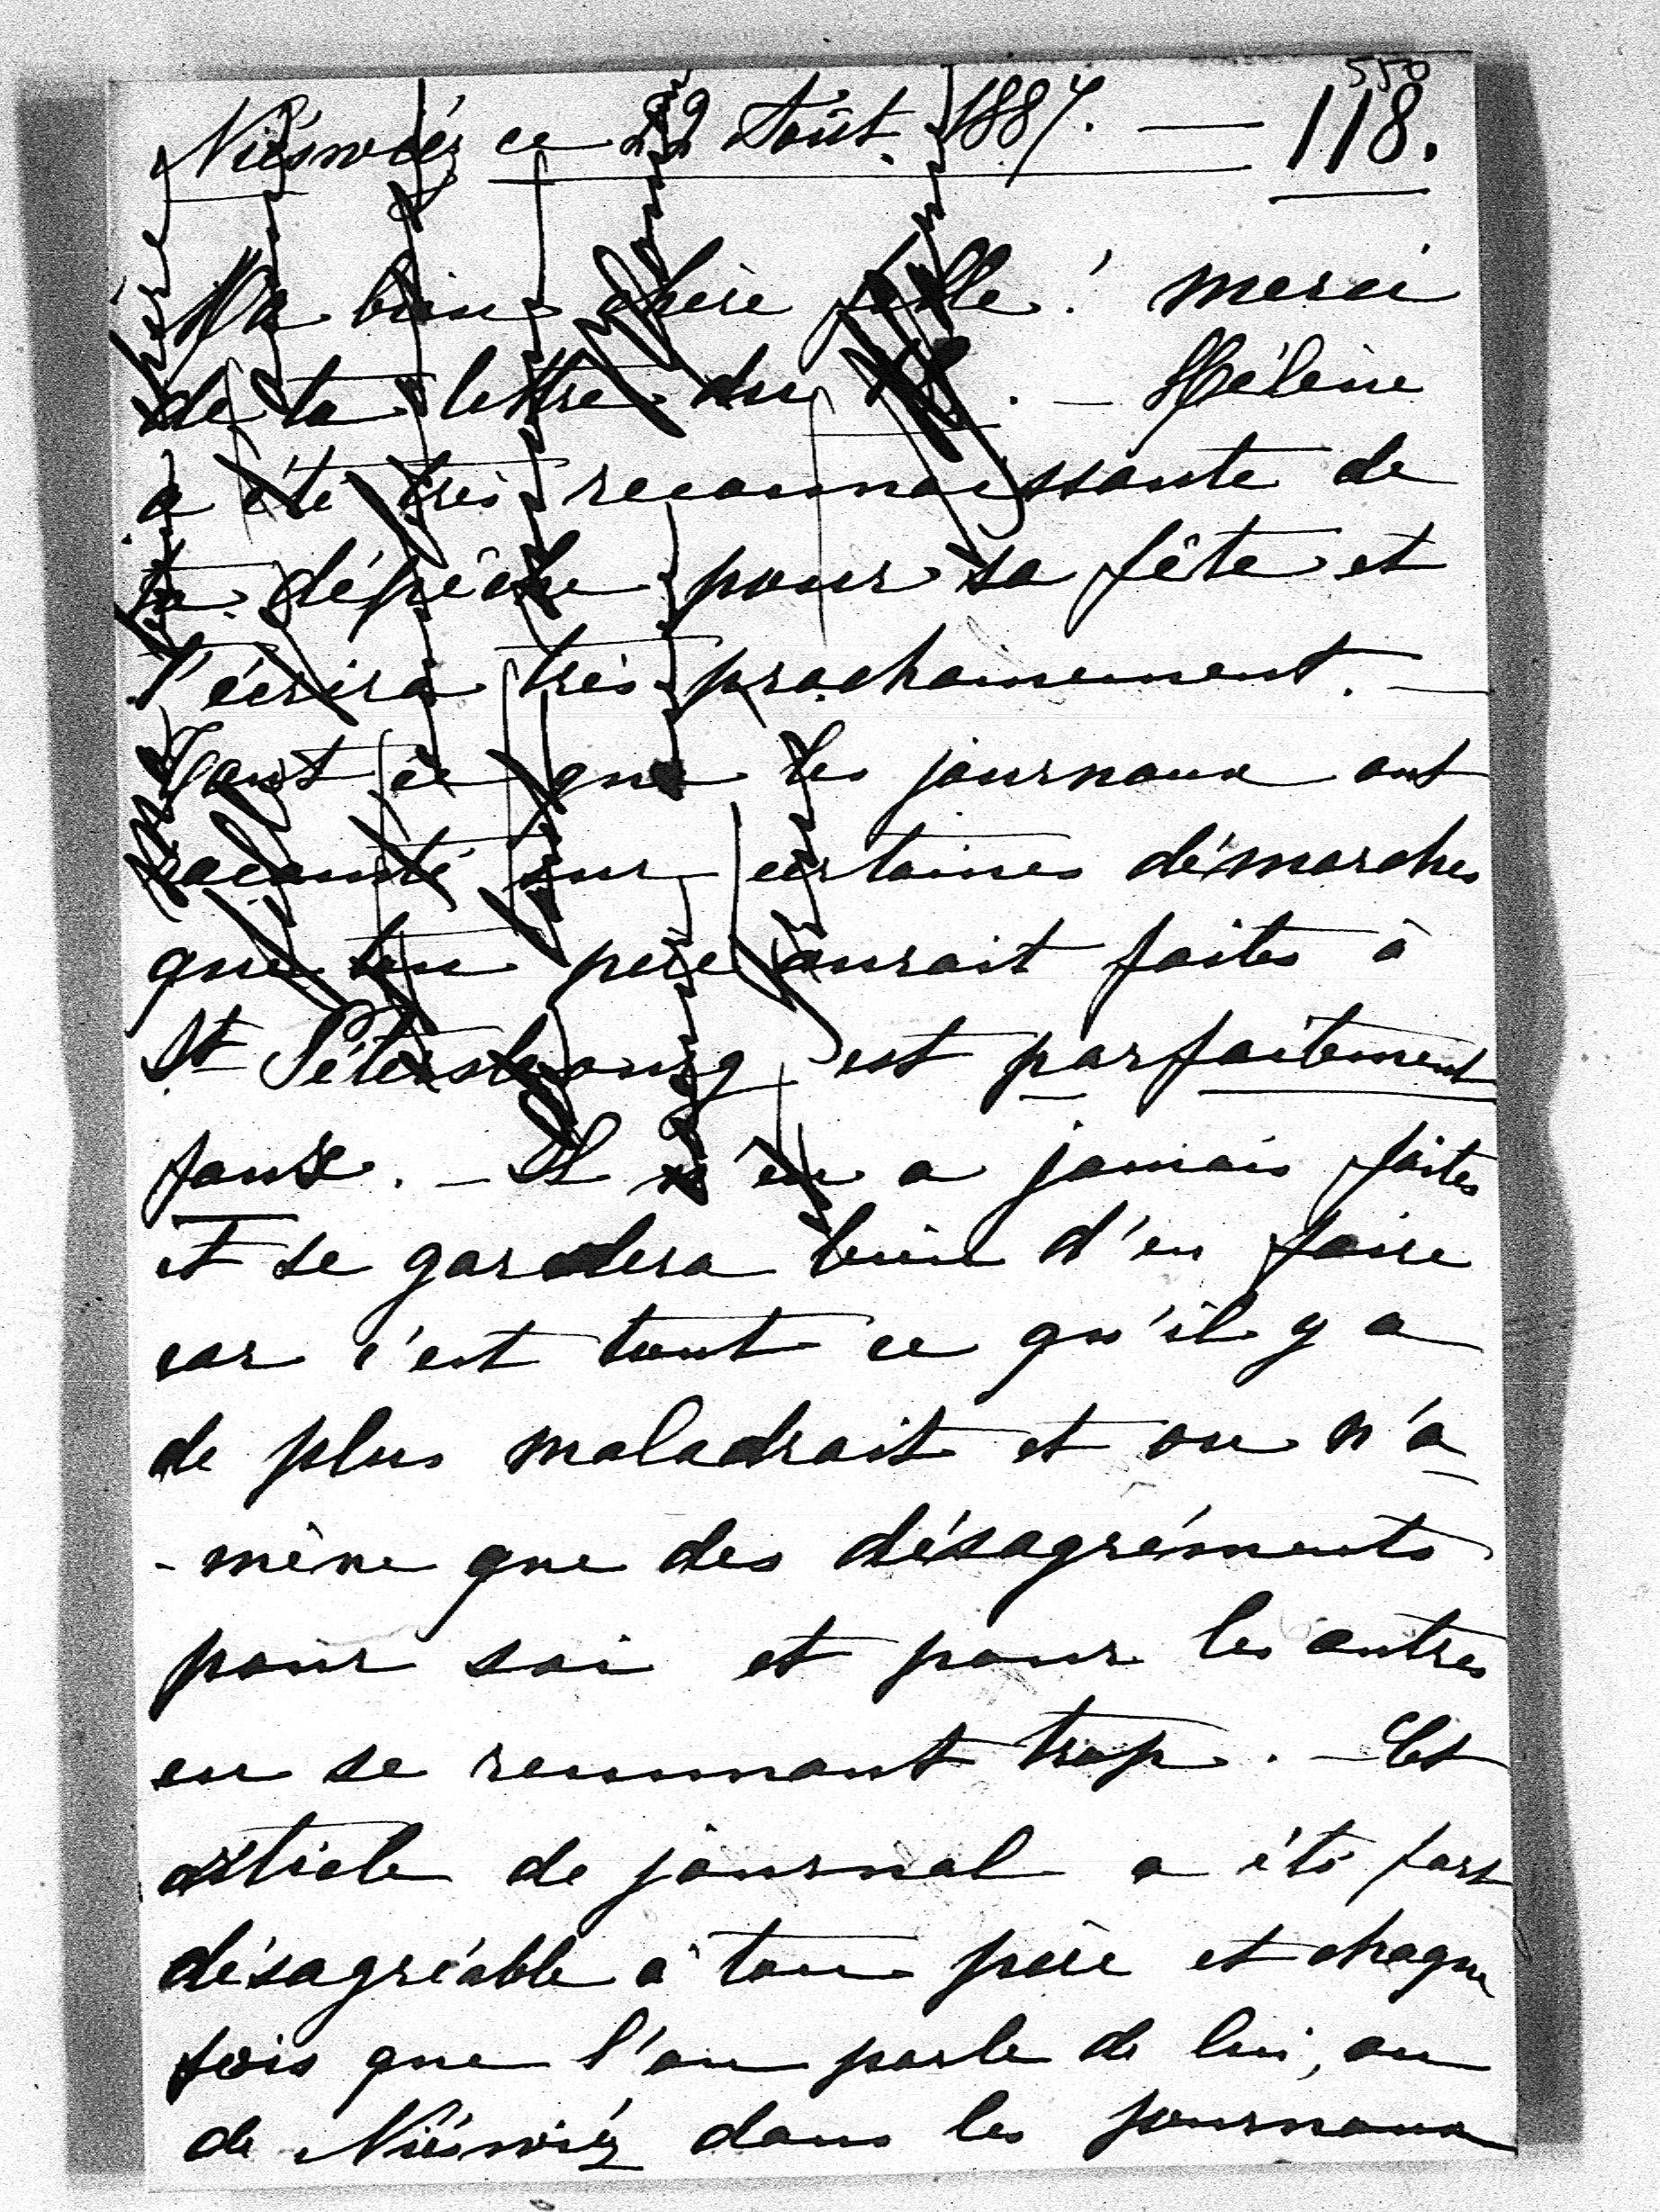 550
Niéswiéz ce 22 Août. 1887. — 118.
Ma bien chère fille! merci
de ta lettre du . — Hélène
a été très reconnaissante de
ta dépêche pour sa fête et
t'écrira très prochainement. —
Tout ce que les journaux ont
raconté sur certaines démarches
que ton père aurait faites à
St Pétersbourg est parfaitement
faux. — Il n'en a jamais faites
et se gardera bien d'en faire
car c'est tout ce qu'il y a
de plus maladroit et on n'a
-mène que des désagréments
pour soi et pour les autres
en se remuant trop. — Cet
article de journal a été fort
désagréable à ton père et chaque
fois que l'on parle de lui, ou
de Niéswiéz dans les journaux